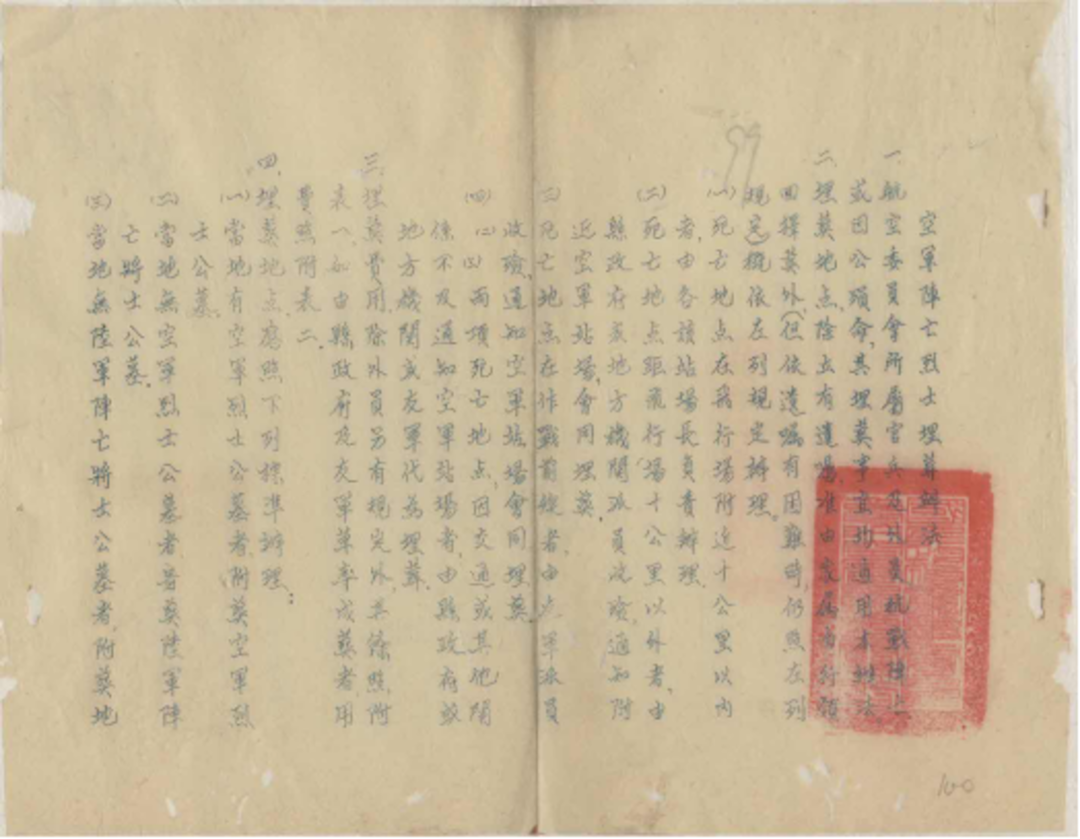 空軍陣亡烈士埋葬辦法
一、航空委員會所屬官兵及外員抗戰陣亡
或因公殞命，其埋葬事宜均適用本辦法
二、埋葬地点，除立有遺囑，准由家屬自行領
回擇葬外，但依遺囑有困難時，仍照左列
規定概依左列規定辦理。
(一)死亡地点在飛行場附近十公里以內
者，由各該站場長負責辦理。
(二)死亡地点距飛行場十公里以外者，由
縣政府或地方機關派員收殮，通知附
近空軍站場，會同埋葬。
(三)死亡地点在作戰前線者，由友軍派員
收殮，通知空軍站場會同埋葬
(四)(二)(三)兩項死亡地点，因交通或其他關
係不及通知空軍站場者，由縣政府或
地方機關或友軍代為埋葬。
三、埋葬費用，除外員另有規定外，其餘照附
表一，如由縣政府及友軍草率成葬者，用
費照附表二。
四、埋葬地点應照下列標準辦理：
(一)當地有空軍烈士公墓者，附葬空軍烈
士公墓。
(二)當地無空軍烈士公墓者，葬陸軍陣
亡將士公墓。
(三)當地無陸軍陣亡將士公墓者，附葬地
99
100